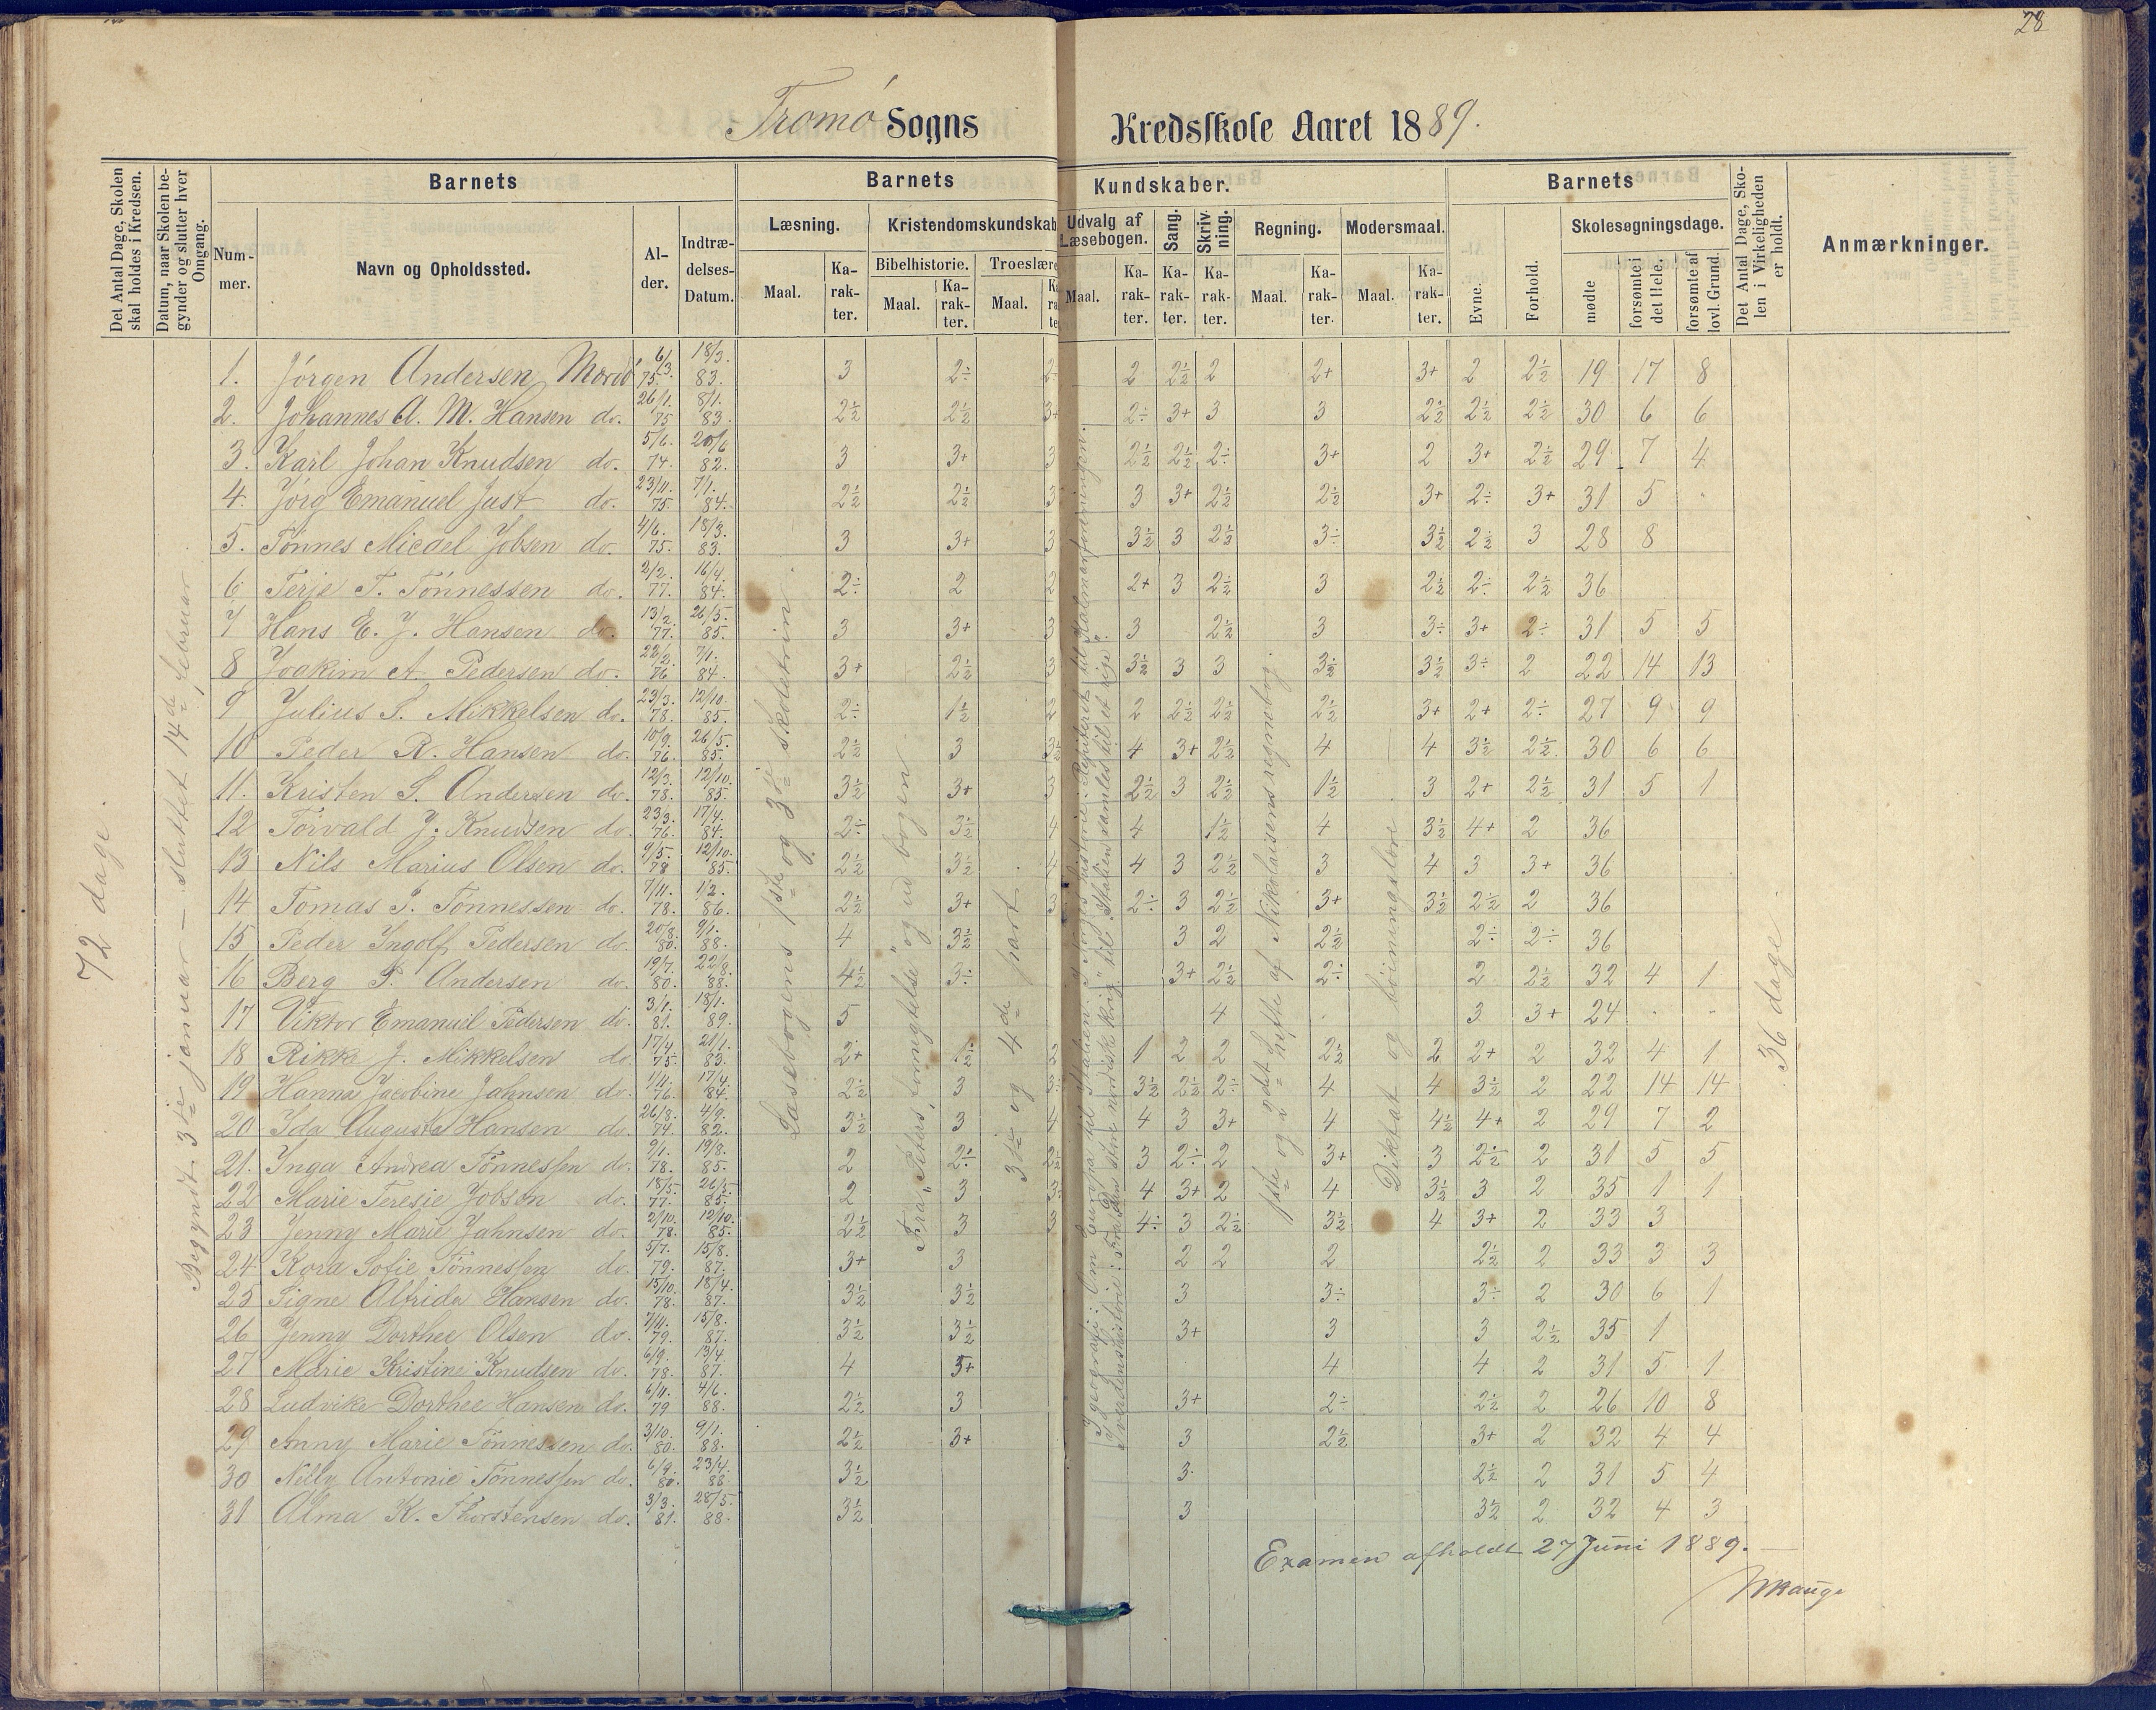 28
Tromø Sogns Kredsskole Aaret 1889.
Det Antal Dage, Skolen skal holdes i Kredsen.
Datum, naar Skolen begynder og slutter hver Omgang.
Barnets
Nummer.
Navn og Opholdssted.
Alder.
Indtrædelses-Datum.
Barnets Kundskaber.
Læsning.
Maal.
Karakter.
Kristendomskundskab
Bibelhistorie.
Maal.
Karakter.
Troeslære
Maal.
Udvalg af Læsebogen.
Maal.
Karakter.
Sang.
Karakter.
Skrivning.
Karakter.
Regning.
Maal.
Karakter.
Modersmaal.
Maal.
Karakter.
Barnets
Evne.
Forhold.
Skolesøgningsdage.
mødte
forsømte i det Hele.
forsømte af lovl. Grund.
Det Antal Dage, Skolen i Virkeligheden er holdt.
Anmærkninger.
72 dage.
Begyndt 3die januar — sluttet 14de februar.
Læsebogens 1ste og 3die skoletrin.
og ud bogen.
3die og 4de part.
1ste og 2det hefte af Nikolaisens regnebog.
Diktat og bøiningslære
36 dage
1. Jørgen Andersen Mærdø 6/3. 75. 18/3. 83. 3 2÷ 2÷ 2 2½ 2 2+ 3+ 2 2½ 19 17 8
2. Johannes A. M. Hansen do. 26/1. 75 8/1. 83. 2½ 2½ 3+ 2÷ 3+ 3 3 2½ 2½ 2½ 30 6 6
3. Karl Johan Knudsen do. 5/6. 74. 20/6 82. 3 3+ 3 2½ 2½ 2÷ 3+ 2 3+ 2½ 29 7 4
4. Jørg Emanuel Just do. 23/11. 75. 7/1. 84. 2½ 2½ 3 3 3+ 2½ 2½ 3+ 2÷ 3+ 31 5
5. Tønnes Micael Jobsen do. 4/6. 75. 18/3. 83. 3 3+ 3 3½ 3 2½ 3÷ 3½ 2½ 3 28 8
6 Terje T. Tønnessen do. 2/2. 77. 16/4. 84. 2÷ 2 2 2+ 3 2½ 3 2½ 2÷ 2½ 36
7 Hans E. J. Hansen do. 13/2. 77. 26/5. 85. 3 3+ 3 3 2½ 3 3÷ 3+ 2÷ 31 5 5
8 Joakim A. Pedersen do. 22/2. 76 7/1. 84. 3+ 2½ 3 3½ 3 3 3½ 3½ 3÷ 2 22 14 13
9 Julius S. Mikkelsen do. 23/3. 78. 12/10. 85. 2÷ 1½ 2 2 2½ 2½ 2½ 3+ 2+ 2÷ 27 9 9
10 Peder R. Hansen do. 10/9. 76. 26/5. 85. 2½ 3 3½ 4 3+ 2½ 4 4 3½ 2½ 30 6 6
11. Kristen S. Andersen do. 12/3. 78. 12/10. 85. 3½ 3+ 3 2½ 3 2½ 1½ 3 2+ 2½ 31 5 1
12 Torvald J. Knudsen do. 23/3. 76. 17/4. 84. 2÷ 3½ 4 4 1½ 4 3½ 4+ 2 36
13 Nils Marius Olsen do. 9/5. 78 12/10. 85. 2½ 3½ 4 4 3 2½ 3 4 3 3+ 36
14 Tomas J. Tønnessen do. 7/11. 78. 1/2. 86. 2½ 3+ 3 2÷ 3 2½ 3+ 3½ 2½ 2 36
15 Peder Ingolf Pedersen do. 20/8. 80. 9/1. 88. 4 3½ 3 2 2½ 2÷ 2÷ 36
16 Berg P. Andersen do. 19/7. 80. 22/8. 88. 4½ 3÷ 3+ 2½ 2÷ 2 2½ 32 4 1
17 Viktor Emanuel Pedersen do. 3/1. 81. 18/1. 89. 5 4 3 3+ 24
18 Rikke J. Mikkelsen do. 17/4. 75. 21/1. 83. 2+ 1½ 2 1 2 2 2½ 2 2+ 2 32 4 1
19 Hanna Jacobine Jahnsen do. 1/11. 76. 17/4. 84. 2½ 3 3÷ 3½ 2½ 2÷ 4 4 3½ 2 22 14 14
20 Ida Augusta Hansen do. 26/8. 74. 4/9. 82. 3½ 3 4 4 3 3+ 4 4½ 4+ 2 29 7 2
21. Inga Andrea Tønnessen do. 9/1. 78. 19/8. 85. 2 2÷ 2½ 3 2÷ 2 3+ 3 2½ 2 31 5 5
22 Marie Teresie Jobsen do. 18/5. 77. 26/5. 85. 2 3 3÷ 4 3+ 2 4 3½ 3 2 35 1 1
23 Jenny Marie Jahnsen do. 2/10. 78. 12/10. 85. 2½ 3 3 4÷ 3 2½ 3½ 4 3+ 2 33 3
24 Kora Sofie Tønnessen do. 5/7. 79. 15/8. 87. 3+ 3 2 2 2 2½ 2 33 3 3
25 Signe Alfrida Hansen do. 15/10. 78. 18/4. 87. 3½ 3½ 3 3÷ 3÷ 2 30 6 1
26 Jenny Dorthee Olsen do. 7/11. 79. 15/8. 87. 3½ 3½ 3+ 3 3 2½ 35 1
27 Marie Kristine Knudsen do. 6/9. 78. 13/4. 87. 4 3+ 4 4 2 31 5 1
28 Ludvike Dorthee Hansen do. 6/11. 79 4/6. 88. 2½ 3 3+ 2÷ 2½ 2 26 10 8
29 Anny Marie Tønnessen do. 3/10. 80. 9/1. 88. 2½ 3+ 3 2½ 3+ 2 32 4 4
30 Nelly Antonie Tønnessen do. 6/9. 80. 23/4. 88 3½ 3 2½ 2 31 5 4
31 Alma K. Thorstensen do. 3/3. 81. 28/5. 88. 3½ 3 3½ 2 32 4 3
Examen afholdt 27 Juni 1889.